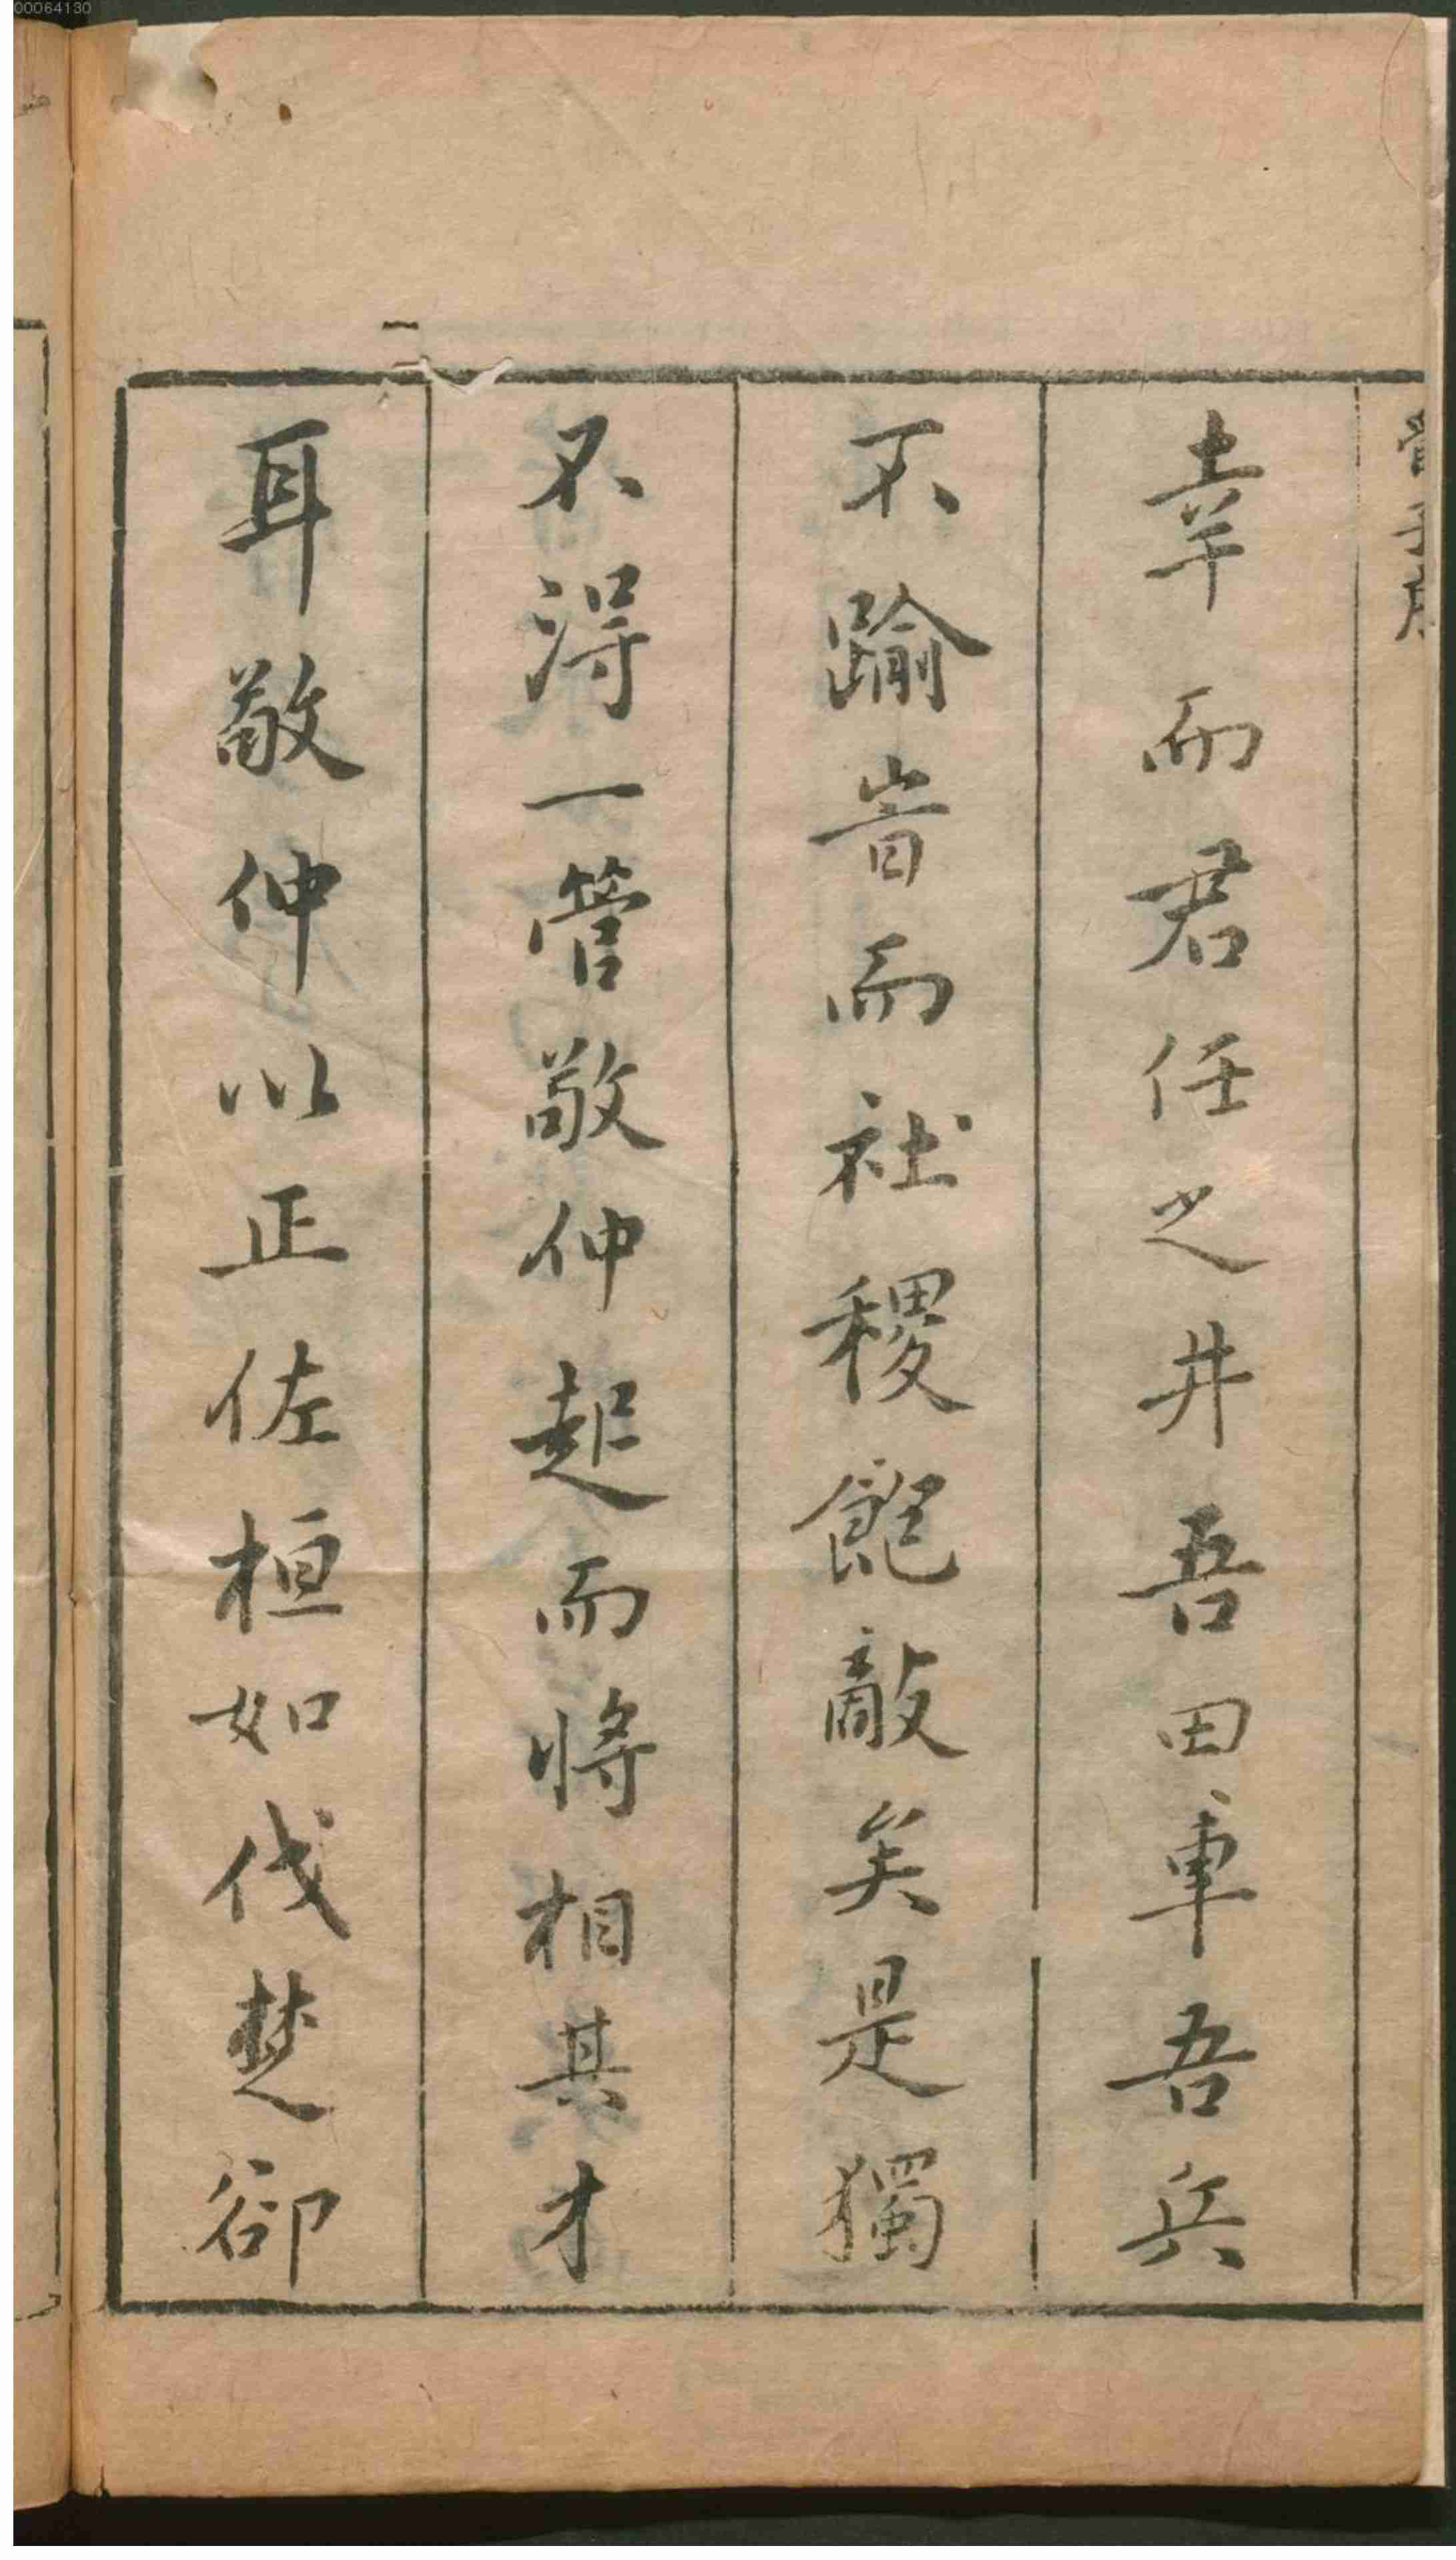 00064130
管子序
幸而君任之井吾田車吾兵
不踰旹而社稷飽敵矣是獨
不淂一管敬仲起而將相其才
耳敬仲以正佐桓如伐楚卻